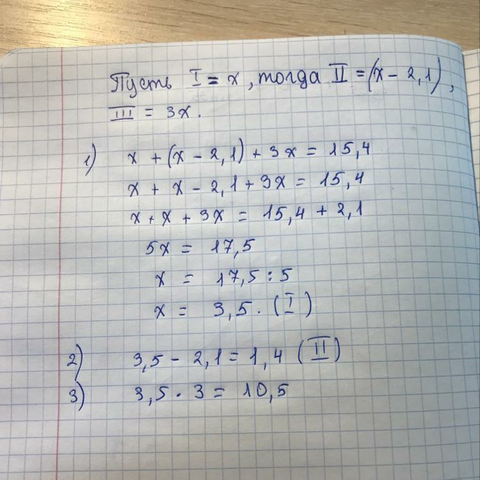 Пусть I = x, тогда II = (x - 2,1),
III = 3x.
1) x + (x - 2,1) + 3x = 15,4
x + x - 2,1 + 3x = 15,4
x + x + 3x = 15,4 + 2,1
5x = 17,5
x = 17,5 : 5
x = 3,5. (I)
2) 3,5 - 2,1 = 1,4 (II)
3) 3,5 · 3 = 10,5